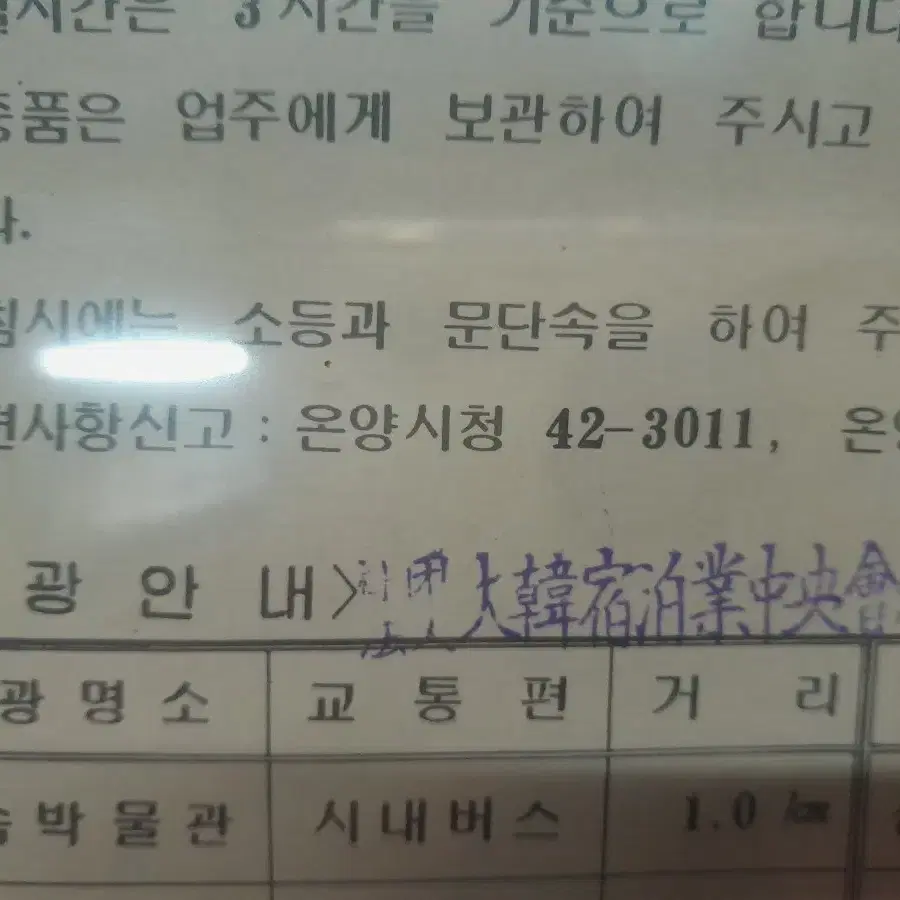 시간은 3시간을 기준으로 합니다
품은 업주에게 보관하여 주시고
다.
침시에는 소등과 문단속을 하여 주
사항신고 : 온양시청 42-3011, 온양
광 안 내> 社團法人 大韓宿泊業中央會
광 명 소 교 통 편 거 리
박 물 관 시 내 버 스 1.0 km